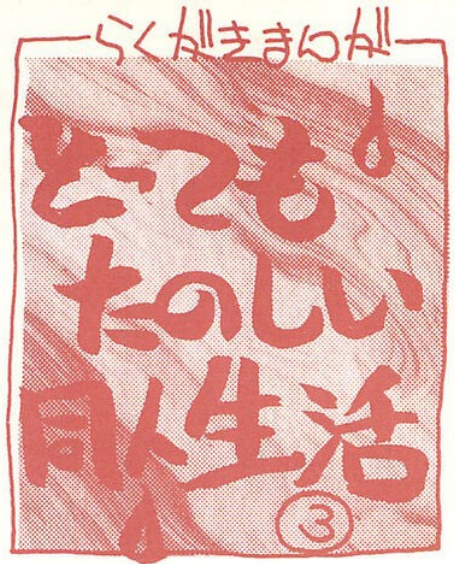 らくがきまんが
とっても
たのしい
同人生活
③